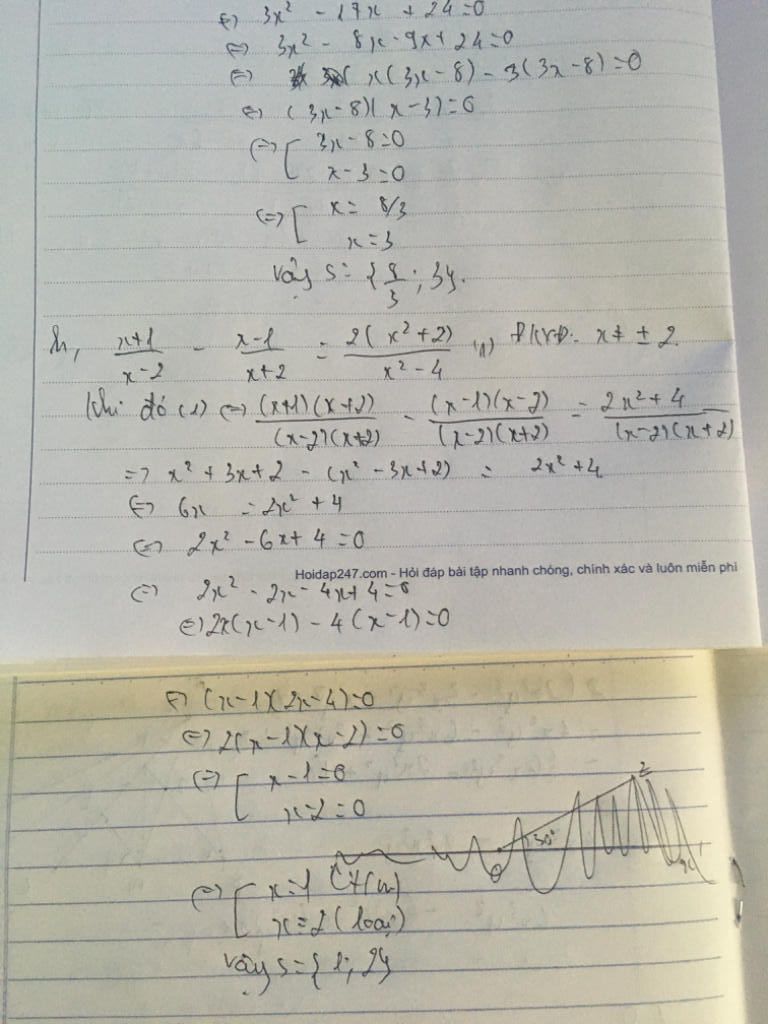 ⇔ 3x² - 17x + 24 = 0
⇔ 3x² - 8x - 9x + 24 = 0
⇔ x(3x - 8) - 3(3x - 8) = 0
⇔ (3x - 8)(x - 3) = 0
⇔ [ 3x - 8 = 0
x - 3 = 0
⇔ [ x = 8/3
x = 3
Vậy S = {8/3; 3}.
h, (x+1)/(x-2) - (x-1)/(x+2) = 2(x²+2)/(x²-4) (1) ĐKXĐ: x ≠ ± 2.
Khi đó (1) ⇔ (x+1)(x+2)/(x-2)(x+2) - (x-1)(x-2)/(x-2)(x+2) = 2x²+4/(x-2)(x+2)
=> x² + 3x + 2 - (x² - 3x + 2) = 2x² + 4
⇔ 6x = 2x² + 4
⇔ 2x² - 6x + 4 = 0
Hoidap247.com - Hỏi đáp bài tập nhanh chóng, chính xác và luôn miễn phí
⇔ 2x² - 2x - 4x + 4 = 0
⇔ 2x(x - 1) - 4(x - 1) = 0
⇔ (x - 1)(2x - 4) = 0
⇔ 2(x - 1)(x - 2) = 0
⇔ [ x - 1 = 0
x - 2 = 0
z
30°
⇔ [ x = 1 (t/m)
x = 2 (loại)
Vậy S = {1; 2}